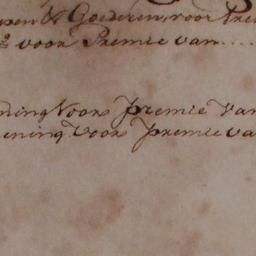 pen & Goederen, voor Pre
voor Premie van ....
ning Voor premie Van
ening Voor premie va